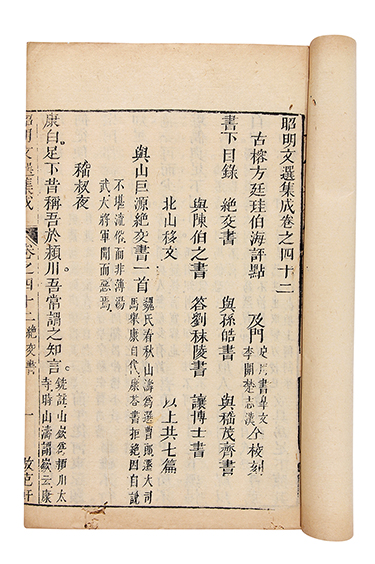 昭明文選集成卷之四十二
古榕方廷珪伯海評點　及門　史丹書阜文　李開楚志漢　仝校刻
書下目錄　絶交書　與孫皓書　與嵇茂齊書
與陳伯之書　答劉秣陵書　讓博士書
北山移文　以上共七篇
與山巨源絶交書一首
魏氏春秋山濤爲選曹郎遷大司馬舉康自代康答書拒絶因自說
不堪流俗而非薄湯武大將軍聞而惡焉
嵇叔夜
康白足下昔稱吾於潁川吾嘗謂之知言
銑註山嶔爲潁川太
守時山濤謂嶔云康
昭明文選集成　卷之四十二　絶交書　一　敩范軒